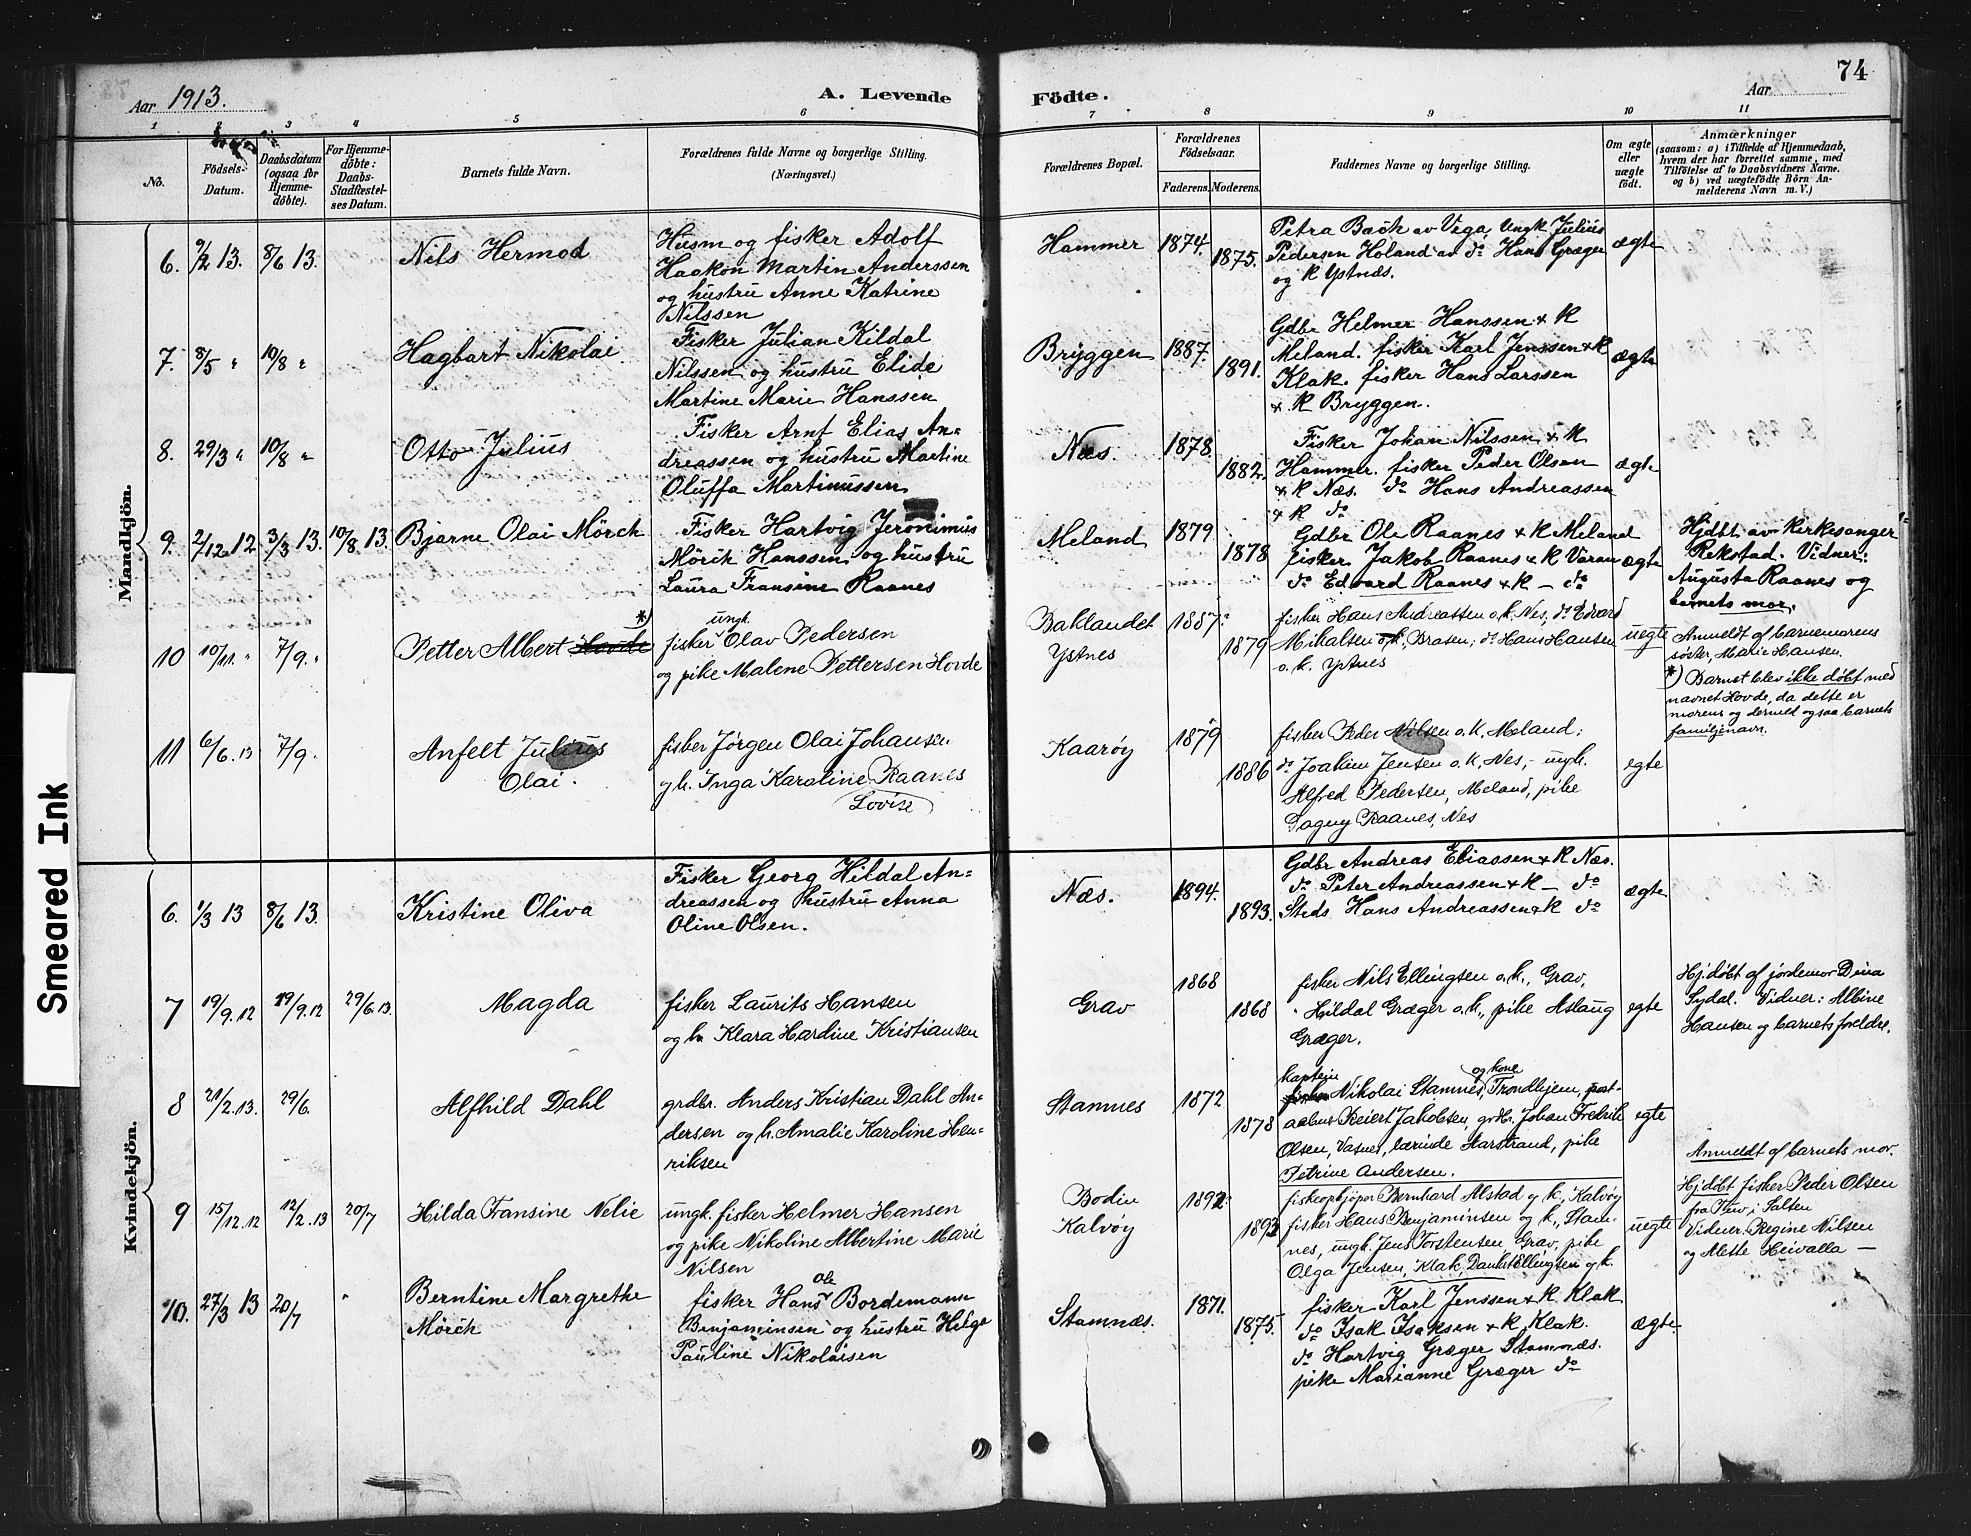 74
Aar 1913.
A. Levende Födte.
Aar
1 2 3 4 5 6 7 8 9 10 11
No.
Födsels-
Datum.
Daabsdatum
(ogsaa for
Hjemme-
döbte).
For Hjemme-
döbte:
Daabs-
Stadfæstel-
ses Datum.
Barnets fulde Navn.
Forældrenes fulde Navne og borgerlige Stilling.
(Næringsvei.)
Forældrenes Bopæl.
Forældrenes
Födselsaar.
Faderens. Moderens.
Faddernes Navne og borgerlige Stilling.
Om ægte
eller
uægte
födt.
Anmærkninger
(saasom: a) i Tilfælde af Hjemmedaab,
hvem der har forrettet samme, med
Tilföielse af to Daabsvidners Navne,
og b) ved uægtefödte Börn An-
melderens Navn m. V.)
Mandkjön.
6. 9/2 13. 8/6 13. Nils Hermod
Husm og fisker Adolf
Haakon Martin Anderssen
og hustru Anne Katrine
Nilssen
Hammer 1874. 1875.
Petra Bach av Vega, Ungk Julius
Pedersen Holand av do Hans Græger
og K Ystnæs.
ægte
7. 8/5 " 10/8 " Hagbart Nikolai
Fisker Julian Kildal
Nilssen og hustru Elide
Martine Marie Hanssen
Bryggen 1887. 1891.
Gdbr Helmer Hanssen + K
Meland. fisker Karl Jenssen + K
Klak. fisker Hans Larssen
+ K Bryggen.
ægte
8. 29/3 " 10/8 " Otto Julius
Fisker Arnt Elias An=
dreassen og hustru Martine
Oluffa Martinussen
Næs. 1878. 1882.
Fisker Johan Nilssen + K
Hammer. fisker Peder Olsen
+ K Næs. do Hans Andreassen
+ K do
ægte
9. 2/12 12 3/3 13. 10/8 13. Bjarne Olai Mörch
Fisker Hartvig Jeronimus
Mörch Hanssen og hustru
Laura Fransine Raanes
Meland 1879 1878
Gdbr Ole Raanes + K Meland
fisker Jakob Raanes + K Varan
do Edvard Raanes + K — do
ægte
Hjdbt av Kirkesanger
Rekstad. Vidner:
Augusta Raanes og
barnets mor.
10 10/11. " 7/9. " Petter Albert Hovde *)
ungk.
fisker Olav Pedersen
og pike Malene Pettersen Hovde
Baklandet
Ystnes
1887. 1879
fisker Hans Andreassen o.k. Nes, do Edvard
Mikalsen o.k., Brasen; do Hans Hansen
o. k. Ystnes
uegte
Anmeldt af barnemorens
søster, Marie Hansen.
*) Barnet blev ikke døbt med
navnet Hovde, da dette er
morens og dermed ogsaa barnets
familjenavn.
11 6/6. 13 7/9. Anfelt Julius
Olai.
fisker Jörgen Olai Johansen
g h. Inga Karoline Raanes
Lovise
Kaarøy 1879 1886
fisker Peder Nilsen o.k, Meland;
do Joakim Jensen o.k, Nes, - ungk.
Alfred Pedersen, Meland, pike
Dagny Raanes, Nes
egte
Kvindekjön.
6. 1/3 13 8/6 13. Kristine Oliva
Fisker Georg Hildal An=
dreassen og hustru Anna
Oline Olsen.
Næs. 1894. 1893.
Gdbr Andreas Eliassen + K Næs.
do Peter Andreassen + K — do
Steds Hans Andreassen + K do
ægte
7 19/9. 12 29/9. 12 29/6. 13. Magda
fisker Laurits Hansen
og h Klara Hardine Kristiansen
Grav 1868 1868
fisker Nils Ellingsen o.k., Grav,
" Hildal Græger o.k., pike Aslaug
Græger.
egte
Hj.døbt af jordemor Dina
Sydal. Vidner: Albine
Hansen og barnets foreldre.
8 21/2. 13. 29/6. Alfhild Dahl
grdbr. Anders Kristian Dahl An=
dersen og h. Amalie Karoline Hen=
riksen
Stamnes 1872 1878
kaptein og kone
fisker Nikolai Stamnes, Trondhjem, post-
aabner Reiert Jakobsen, grdbr. Johan Fredrik
Olsen, Vasnes, lærinde Aarstrand, pike
Petrine Andersen.
egte
9 15/12. 12 12/2. 13 20/7 Hilda Fansine Nelie
ungk. fisker Helmer Hansen
og pike Nikoline Albertine Marie
Nilsen
Bodin
Kalvøy
1892. 1893
fiskeopkjøper Bernhard Alstad g k., Kalvøy
fisker Hans Benjaminsen og k., Stam-
nes, ungk. Jens Torstensen Grav, pike
Olga Jensen, Klak, Daniel Ellingsen g k.
uegte
Anmeldt af barnets mor.
Hj.døbt fisker Peder Olsen
fra Tuv, i Salten
Vidner: Regine Nilsen
og Mette Heivalla —
10. 27/3 13 20/7 " Berntine Margrethe
Mörch
fisker Hans Ole Bordemann
Benjaminsen og hustru Helge
Pauline Nikolaisen
Stamnæs. 1871. 1875.
fisker Karl Jenssen + K Klak
do Isak Isaksen + K, Klak.
do Hartvig Græger Stamnæs.
pike Marianne Græger do
ægte
Smeared Ink